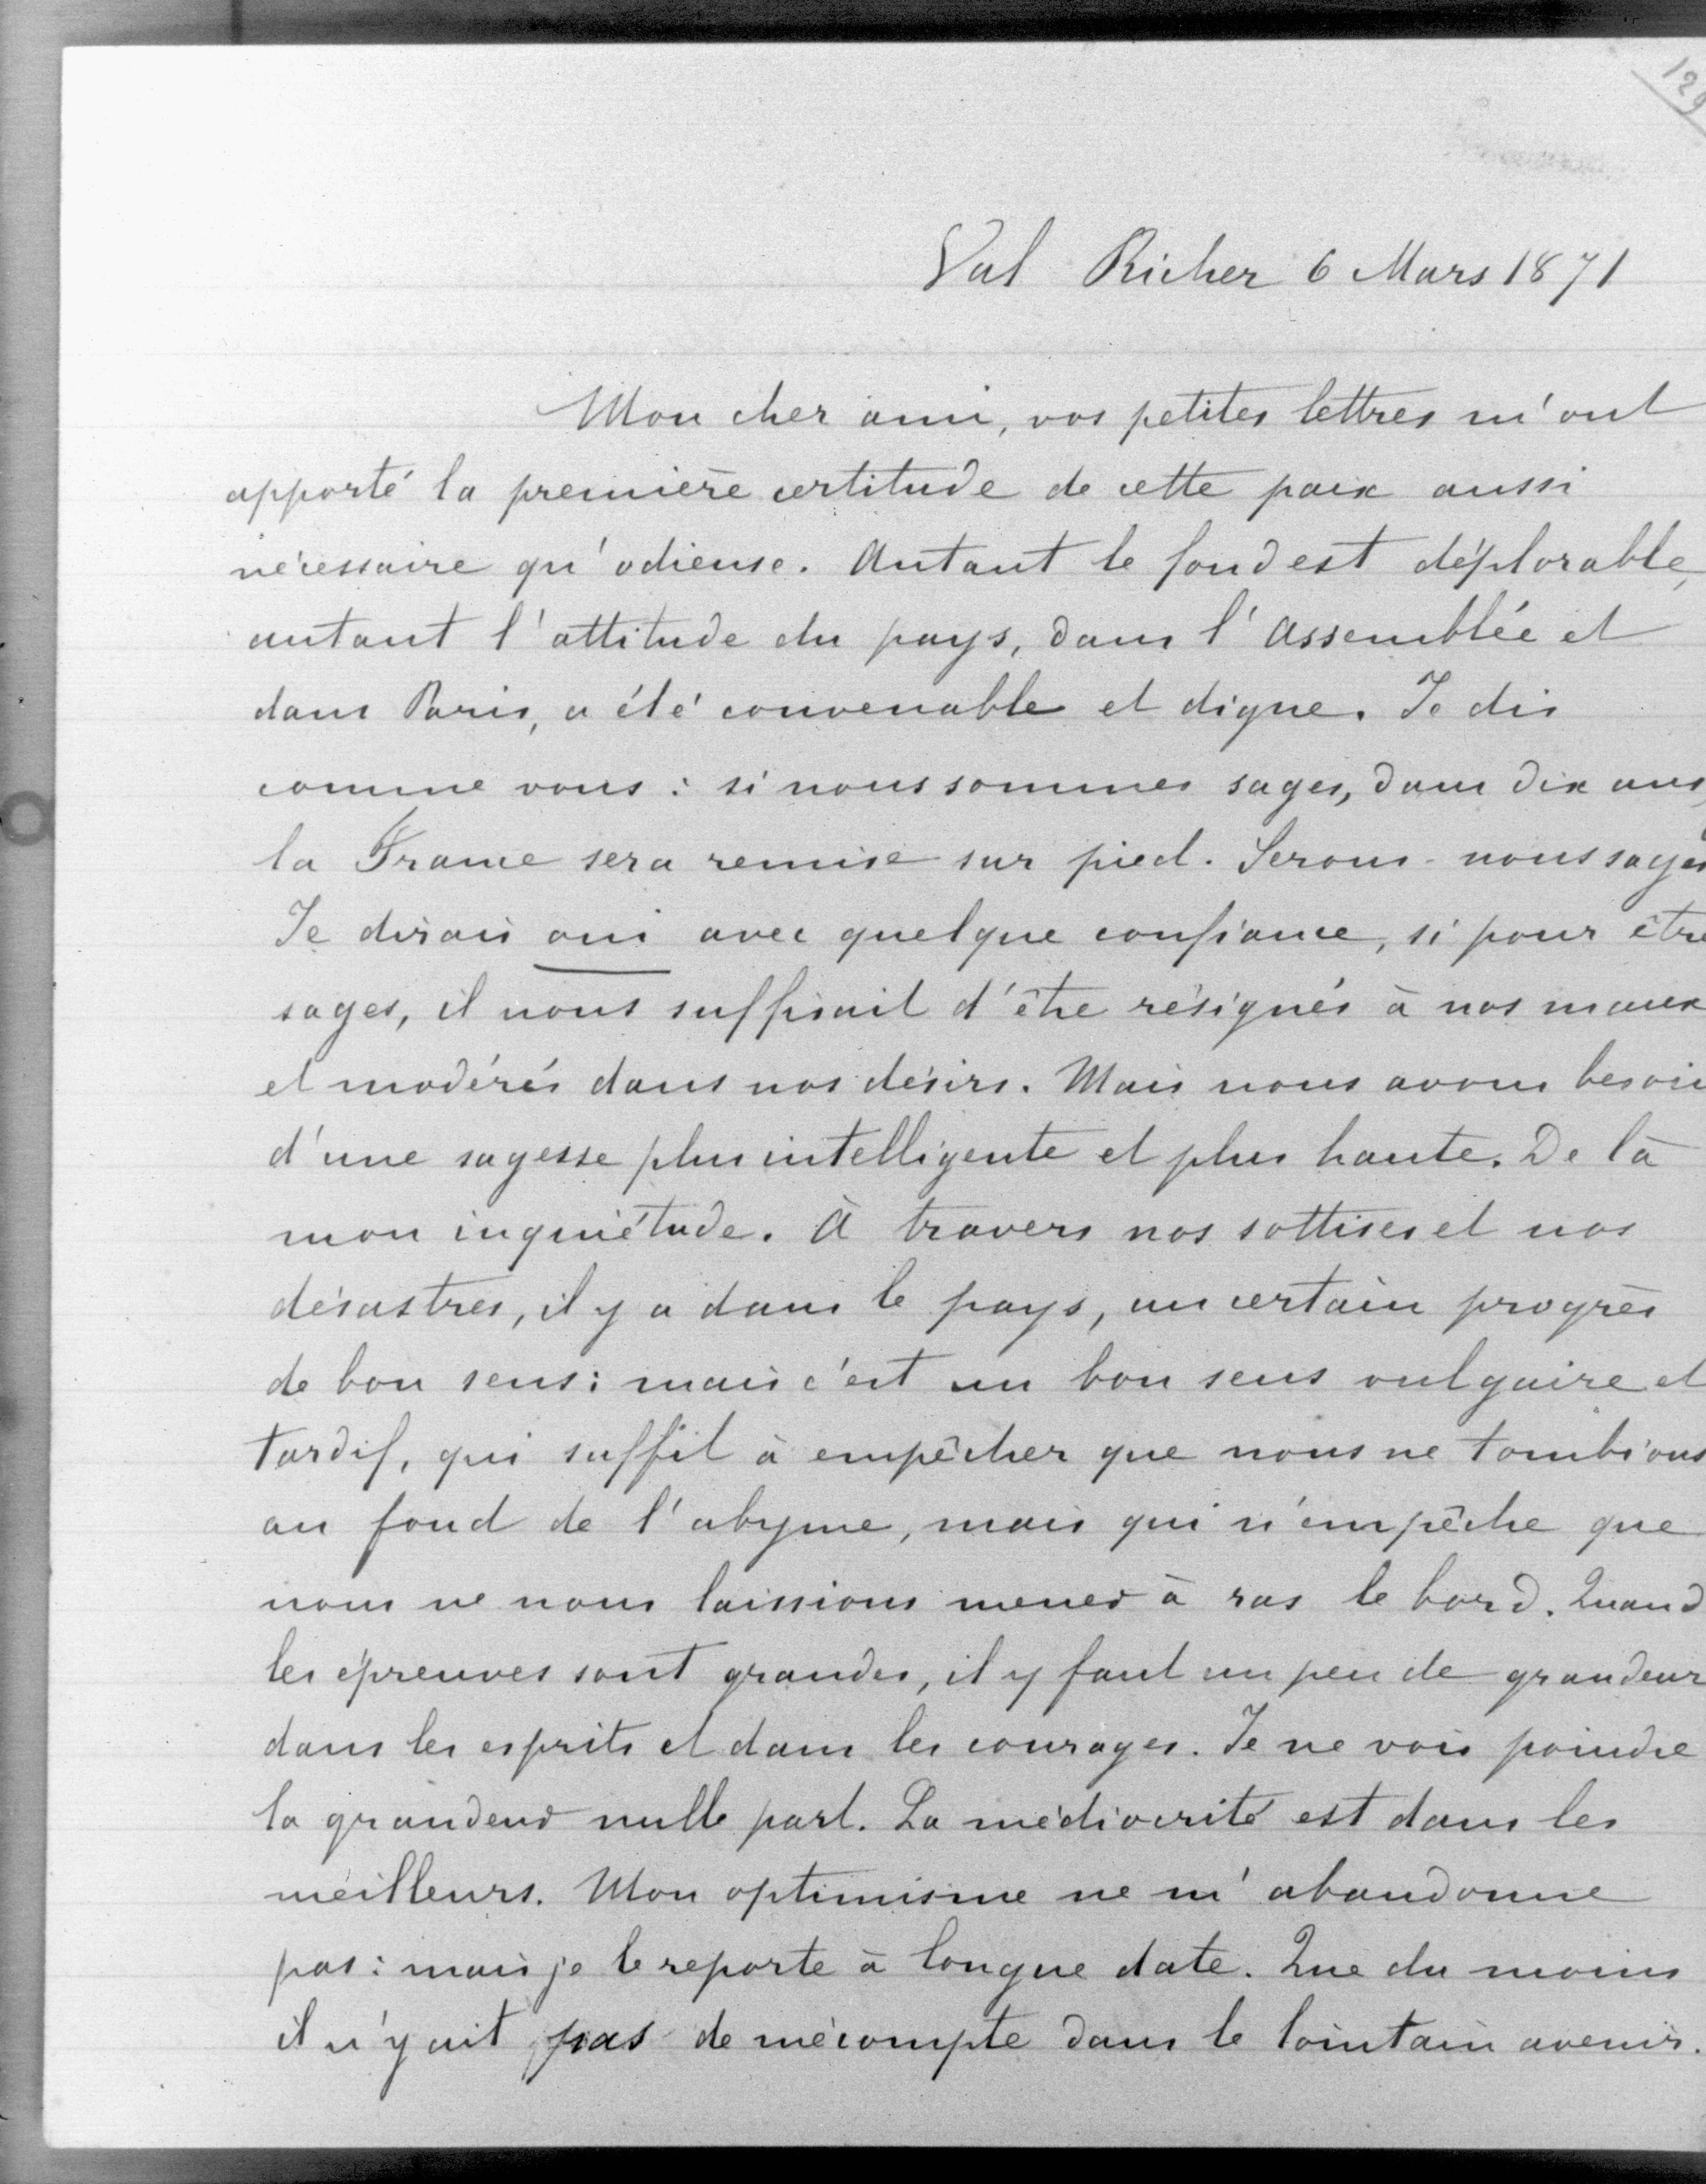 129
Val Richer 6 Mars 1871
Mon cher ami, vos petites lettres m'ont
apporté la première certitude de cette paix aussi
nécessaire qu'odieuse. Autant le fond est déplorable,
autant l'attitude du pays, dans l'Assemblée et
dans Paris, a été convenable et digne. Je dis
comme vous : si nous sommes sages, dans dix ans,
la France sera remise sur pied. Serons-nous sages
Je dirais oui avec quelque confiance, si pour être
sages, il nous suffisait d'être résignés à nos maux
et modérés dans nos désirs. Mais nous avons besoin
d'une sagesse plus intelligente et plus haute. De là
mon inquiétude. À travers nos sottises et nos
désastres, il y a dans le pays, un certain progrès
de bon sens : mais c'est un bon sens vulgaire et
tardif, qui suffit à empêcher que nous ne tombions
au fond de l'abyme, mais qui n'empêche que
nous ne nous laissions mener à ras le bord. Quand
les épreuves sont grandes, il y faut un peu de grandeur
dans les esprits et dans les courages. Je ne vois poindre
la grandeur nulle part. La médiocrité est dans les
meilleurs. Mon optimisme ne m'abandonne
pas : mais je le reporte à longue date. Que du moins
il n'y ait pas de mécompte dans le lointain avenir.